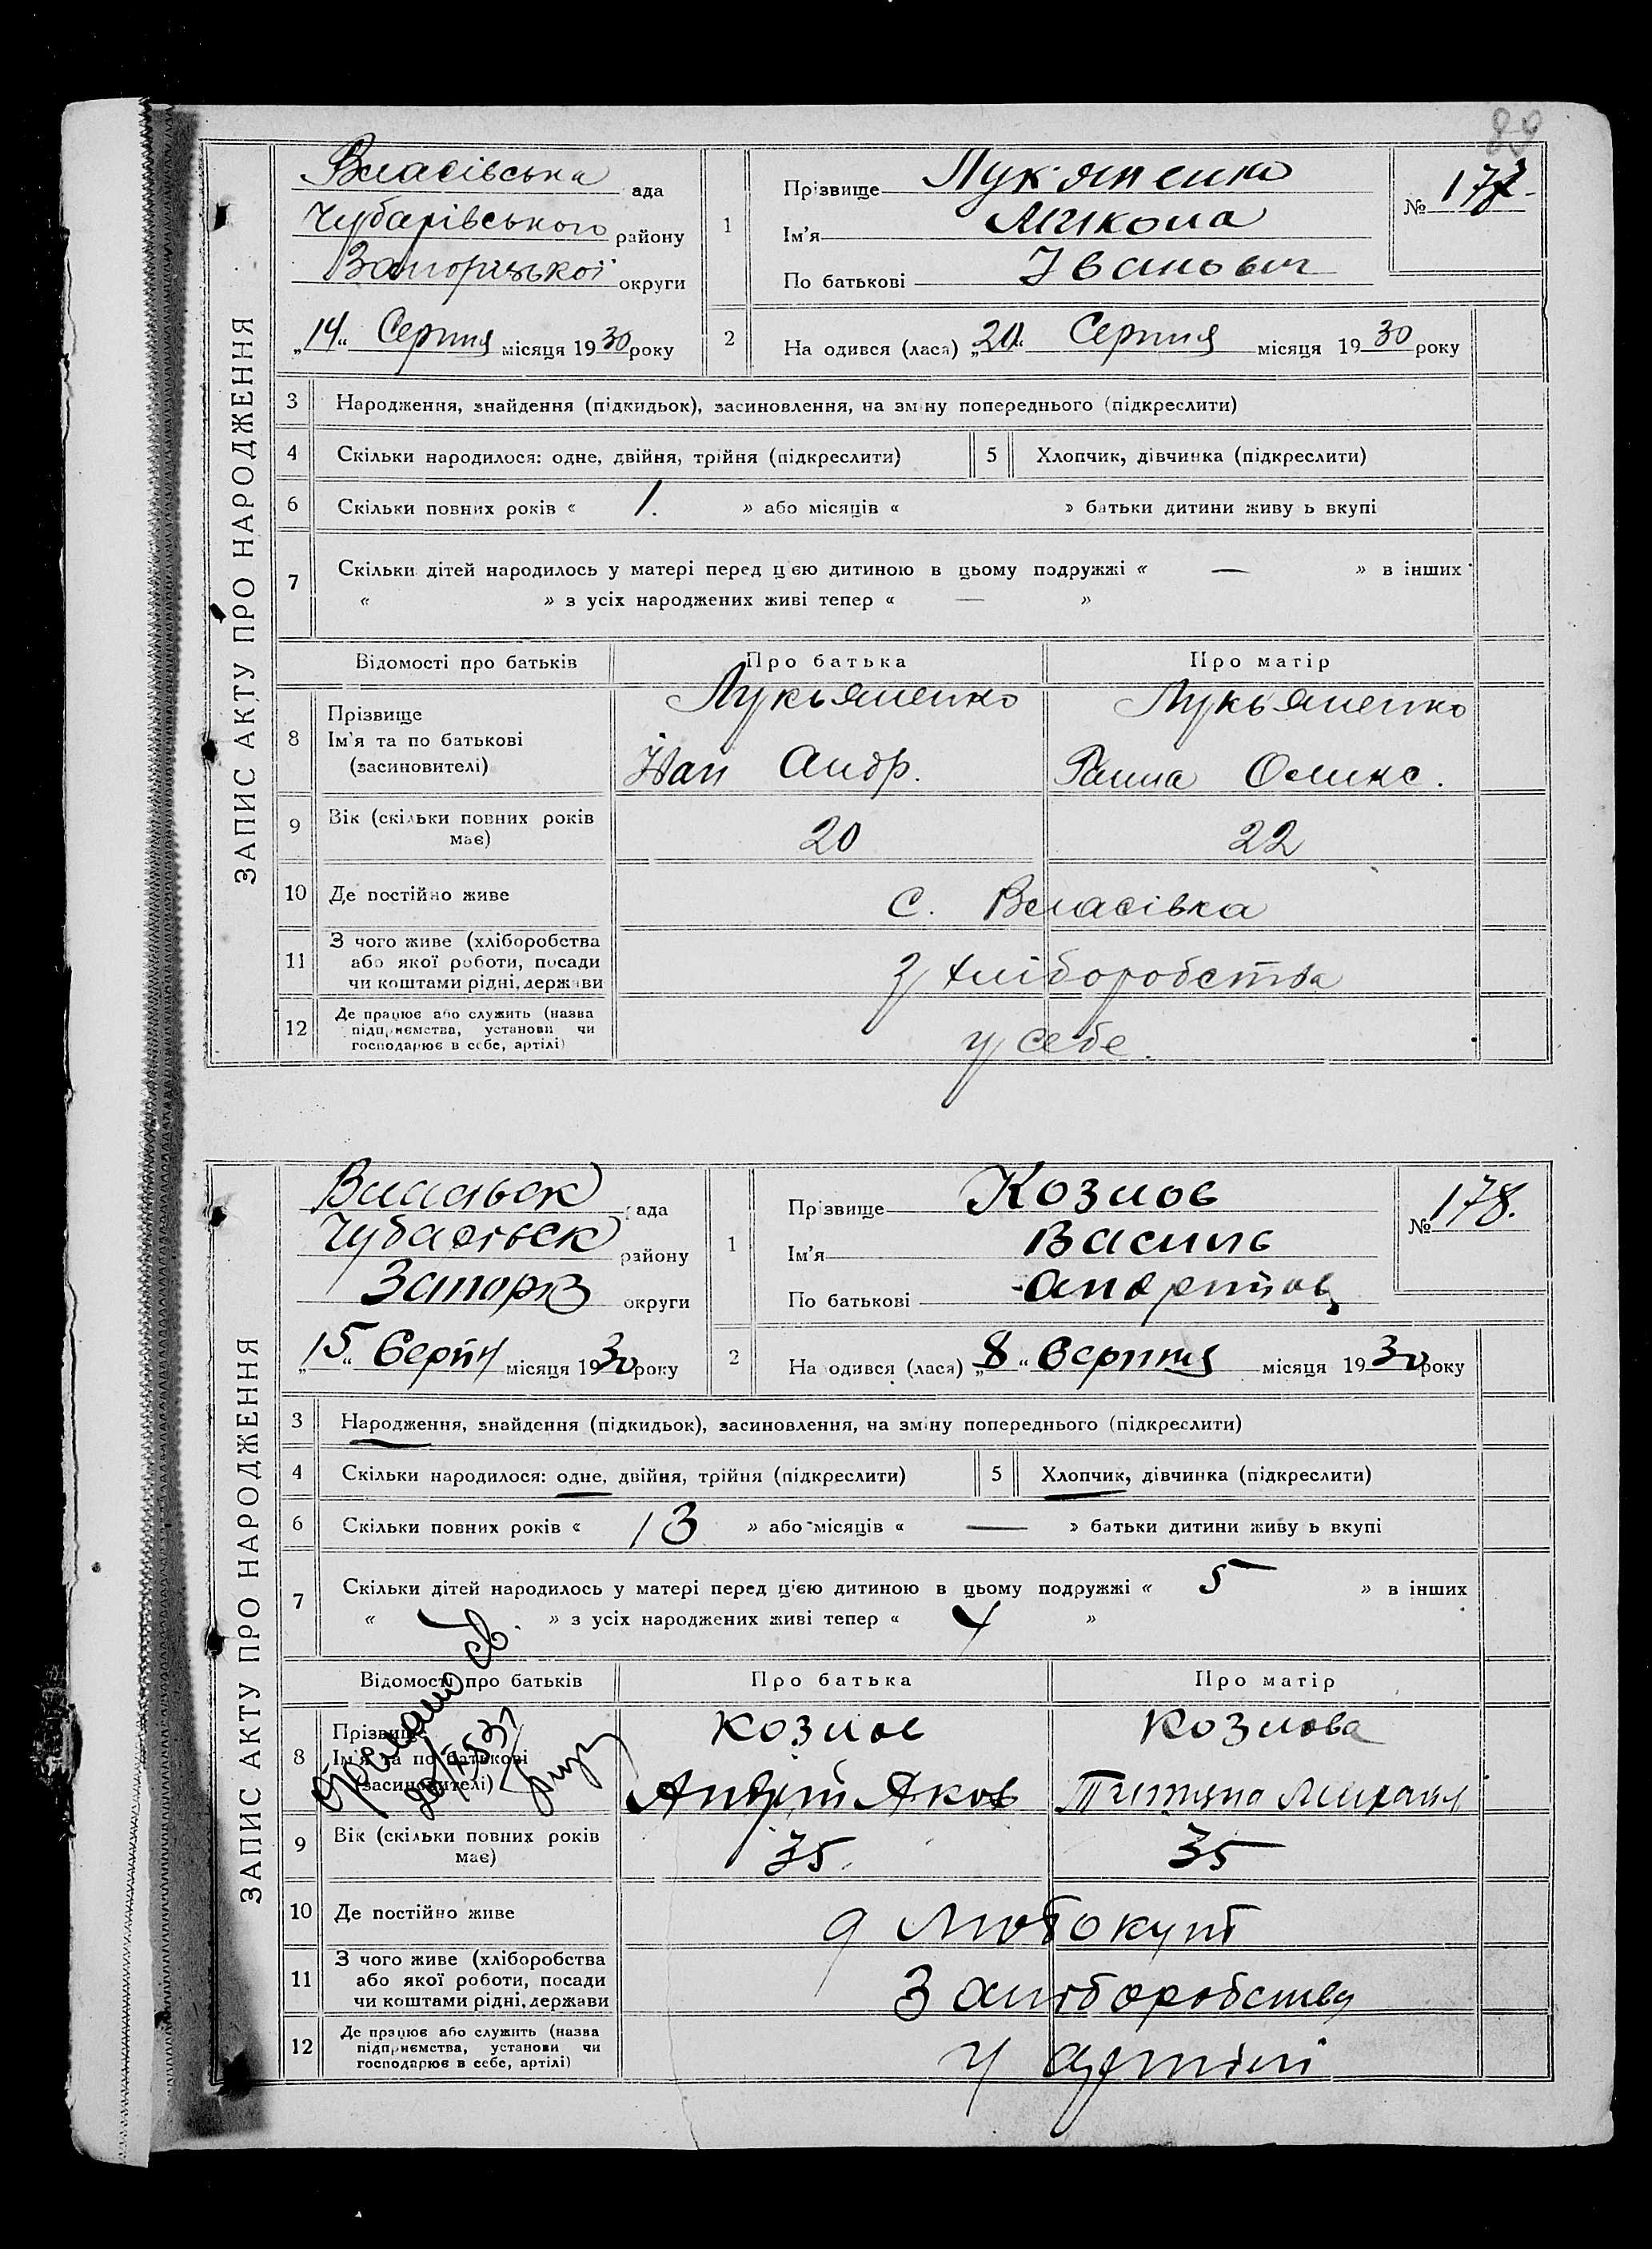 89
ЗАПИС АКТУ ПРО НАРОДЖЕННЯ
Власівська ада
Чубарівського району
Запорізької округи
„14“ Серпня місяця 1930 року
1
Прізвище Лук'яненко
Ім'я Микола
По батькові Іванович
№ 177
2
На одився (лася) „20“ Серпня місяця 1930 року
3 Народження, знайдення (підкидьок), засиновлення, на зм ну попереднього (підкреслити)
4 Скільки народилося: одне, двійня, трійня (підкреслити) 5 Хлопчик, дівчинка (підкреслити)
6 Скільки повних років « 1. » або місяців « » батьки дитини живу ь вкупі
7 Скільки дітей народилось у матері перед цією дитиною в цьому подружжі « — » в інших
« » з усіх народжених живі тепер « — »
Відомості про батьків Про батька Про матір
8 Прізвище Лукьяненко Лукьяненко
Ім'я та по батькові Іван Андр. Ганна Оликс.
(засиновителі)
9 Вік (скільки повних років має) 20 22
10 Де постійно живе с. Власівка
11 З чого живе (хліборобства
або якої роботи, посади
чи коштами рідні, держави
З хліборобства
12 Де працює або служить (назва
підприємства, установи чи
господарює в себе, артілі)
у себе.
ЗАПИС АКТУ ПРО НАРОДЖЕННЯ
Власівск рада
район
Запоріз округи
„15“ Серпн місяця 1930 року
1
Пр звище Козлов
Ім'я Василь
По батькові Андрійов
№ 178.
2
На одився (лася) „8“ Серпня місяця 1930 року
3 Народження, знайдення (підкидьок), засиновлення, на зміну попереднього (підкреслити)
4 Скільки народилося: одне, двійня, трійня (підкреслити) 5 Хлопчик, дівчинка (підкреслити)
6 Скільки повних років « 13 » або місяців « — » батьки дитини живу ь вкупі
7 Скільки дітей народилось у матері перед цією дитиною в цьому подружжі « 5 » в інших
« » з усіх народжених живі тепер « 4 »
Відомості про батьків Про батька Про матір
8 Прізвище Козлов Козлова
Ім'я та по батькові Андрій Яков Титяна Михаил
(засиновителі)
9 Вік (скільки повних років має) 35. 35
10 Де постійно живе Любокут
11 З чого живе (хліборобства
або якої роботи, посади
чи коштами рідні, держави
З хліборобства
12 Де працює або служить (назва
підприємства, установи чи
господарює в себе, артілі)
У артілі